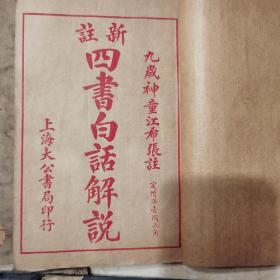 九歲神童江希張註
新註
四書白話解說
上海大公書局印行